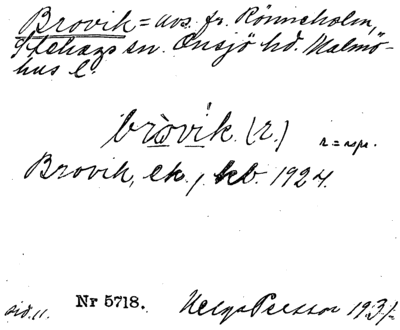 Brovik = avs. fr. Rönneholm,
Stehags sn. Onsjö hd. Malmö-
hus l.
brovik. (r.)
Brovik, ek., kb. 1924.
sid. 11. Nr 5718. Helga Persson 193